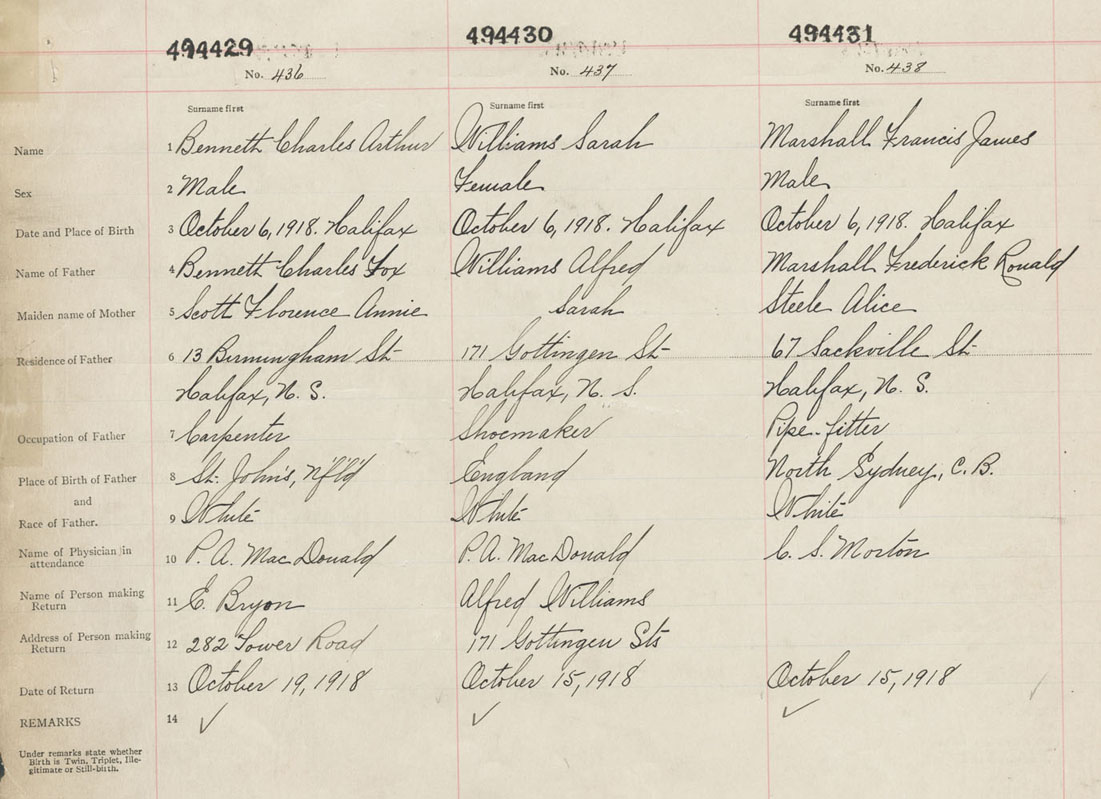 494429 494430 494431
No. 436 No. 437 No. 438
Surname first Surname first Surname first
Name 1 Benneth Charles Arthur Williams Sarah Marshall Francis James
Sex 2 Male Female Male
Date and Place of Birth 3 October 6, 1918. Halifax October 6, 1918. Halifax October 6, 1918. Halifax
Name of Father 4 Benneth Charles Fox Williams Alfred Marshall Frederick Ronald
Maiden name of Mother 5 Scott Florence Annie Sarah Steele Alice
Residence of Father 6 13 Birmingham St. 171 Gottingen St. 67 Sackville St.
Halifax, N. S. Halifax, N. S. Halifax, N. S.
Occupation of Father 7 Carpenter Shoemaker Pipe-fitter
Place of Birth of Father 8 St. John's, Nf'l'd England North Sydney, C. B.
and
Race of Father. 9 White White White
Name of Physician in 10 P. A. MacDonald P. A. MacDonald C. S. Morton
attendance
Name of Person making 11 E. Bryon Alfred Williams
Return
Address of Person making 12 282 Tower Road 171 Gottingen Sts
Return
Date of Return 13 October 19, 1918 October 15, 1918 October 15, 1918
REMARKS 14 ✓ ✓ ✓
Under remarks state whether
Birth is Twin, Triplet, Ille-
gitimate or Still-birth.